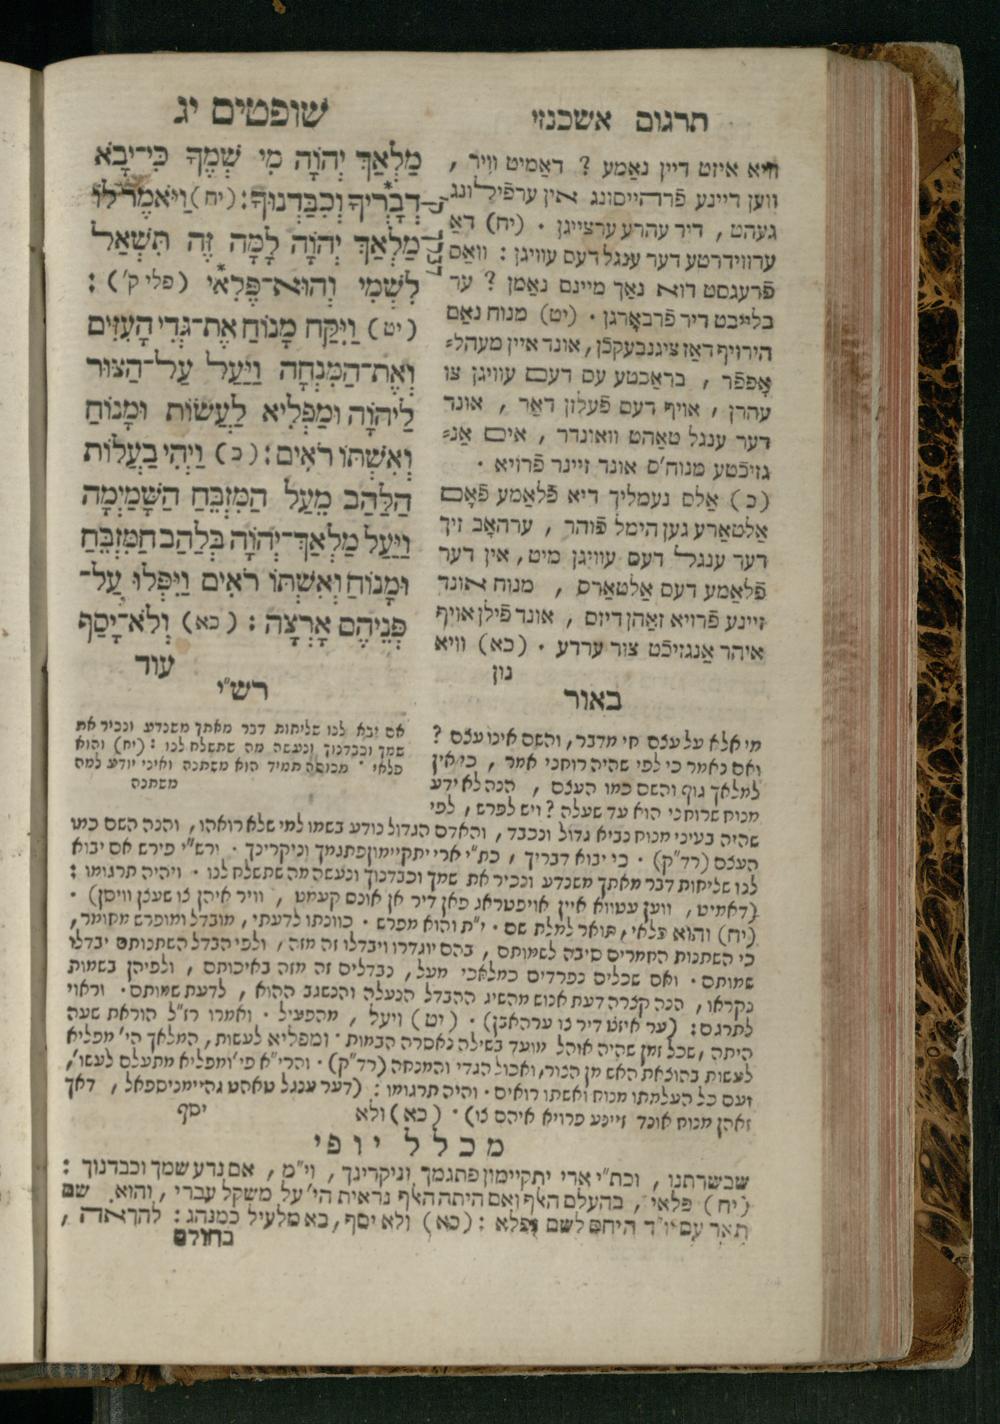 שופטים יג
תרגום אשכנזי
מַלְאַךְ יְהוָֹה מִי שְׁמֶךָ כִּי־יָבֹא
דְבָרְיךָ וְכִבַּדְנוּךָ : (יח) וַיֹּאמֶר לוֹ
דבר ק'
מַלְאַךְ יְהוָֹה לָמָּה זֶּה תִּשְׁאַל
לִשְׁמִי וְהוּא־פֶלִאי (פלי ק') :
(יט) וַיִּקַּח מָנוֹחַ אֶת־גְּדִי הָעִזִּים
וְאֶת־הַמִּנְחָה וַיַּעַל עַל־הַצּוּר
לַיהוָֹה וּמַפְלִיא לַעֲשׂוֹת וּמָנוֹחַ
וְאִשְׁתּוֹ רֹאִים : (כ) וַיְהִי בַעֲלוֹת
הַלַּהַב מֵעַל הַמִּזְבֵּחַ הַשָּׁמַיְמָה
וַיַּעַל מַלְאַךְ־יְהוָֹה בְּלַהַב הַמִּזְבֵּחַ
וּמָנוֹחַ וְאִשְׁתּוֹ רֹאִים וַיִּפְּלוּ עַל־
פְּנֵיהֶם אָרְצָה : (כא) וְלֹא־יָסַף
עוד
וויא איזט דיין נאַמע ? דאַמיט וויר ,
ווען דיינע פֿרהייסונג אין ערפֿיללונג
געהט , דיר עהרע ערצייגן . (יח) דאַ
ערווידרטע דער ענגל דעס עוויגן : וואַס
פֿרעגסט דוא נאַך מיינם נאַמן ? ער
בלייבט דיר פֿרבאָרגן . (יט) מנוח נאַם
הירויף דאַז ציגנבעקכֿן , אונד איין מעהל=
אָפפֿר , בראַכטע עס דעם עוויגן צו
עהרן , אויף דעם פֿעלזן דאַר , אונד
דער ענגל טאַהט וואונדר , אים אַנ=
גזיכֿטע מנוח'ס אונד זיינר פֿרויא .
(כ) אַלס נעמליך דיא פֿלאַמע פֿאָם
אַלטאַרע גען הימל פֿוהר , ערהאָב זיך
דער ענגל דעס עוויגן מיט , אין דער
פֿלאַמע דעס אַלטאַרס , מנוח אונד
זיינע פֿרויא זאַהן דיזס , אונד פֿילן אויף
איהר אַנגזיכֿט צור ערדע . (כא) וויא
נון
רש"י
אם יבא לנו שליחות דבר מאתך משנדע ונכיר את
שמך וכבדנוך ונעשה מה שתשלח לנו : (יח) והוא
פלאי . מכוסה תמיד הוא משתנה ואיני יודע למה
משתנה
באור
מי אלא על עצם חי מדבר , והשם אינו עצם ?
ואם נאמר כי לפי שהיה רוחני אמר , כי אין
למלאך גוף והשם כמו העצם , הנה לא ידע
מנוח שרוחני הוא עד שעלה ? ויש לפרש , לפי
שהיה בעיני מנוח נביא גדול ונכבד , והאדם הגדול נודע בשמו למי שלא רואהו , והנה השם כמו
העצם (רד"ק) . כי יבוא דבריך , כת"י ארי יתקיימון פתגמך וניקרינך . ורש"י פירש אם יבוא
לנו שליחות דבר מאתך משנדע ונכיר את שמך וכבדנוך ונעשה מה שתשלח לנו . ויהיה תרגומו :
(דאמיט , ווען עטווא איין אויפטראג פאן דיר אן אונס קעמט , וויר איהן צו שעצן וויסן) .
(יח) והוא פלאי , תואר למלת שם . י"ת והוא מפרש . כוונתו לדעתי , מובדל ומופרש מחומר ,
כי השתנות החמרים סיבה לשמותם , בהם יוגדרו ויבדלו זה מזה , ולפי הבדל השתנותם יבדלו
שמותם . ואם שכלים נפרדים כמלאכי מעל , נבדלים זה מזה באיכותם , ולפיהן בשמות
נקראו , הנה קצרה דעת אנוש מהשיג ההבדל הנעלה והנשגב ההוא , לדעת שמותם . וראוי
לתרגם : (ער איזט דיר צו ערהאבן) . (יט) ויעל , מהפעיל . ואמרו רז"ל הוראת שעה
היתה , שכל זמן שהיה אוהל מועד בשילה נאסרה הבמות . ומפליא לעשות , המלאך הי' מפליא
לעשות בהוצאת האש מן הצור , ואכול הגדי והמנחה (רד"ק) . והרי"א פי' ומפליא מתעלם לעשו' ,
ועם כל העלמתו מנוח ואשתו רואים . והיה תרגומו : (דער ענגל טאהט גהיימניספאל , דאך
זאהן מנוח אונד זיינע פרויא איהם צו) . (כא) ולא
יסף
מכלל יופי
שבשרתנו , וכת"י ארי יתקיימון פתגמך וניקרינך , וי"מ , אם נדע שמך וכבדנוך :
(יח) פלאי , בהעלם האף ואם היתה האף נראית הי' על משקל עברי , והוא שם
תאר עם יו"ד היחס לשם פלא : (כא) ולא יסף , בא מלעיל כמנהג : להראה ,
בחולם